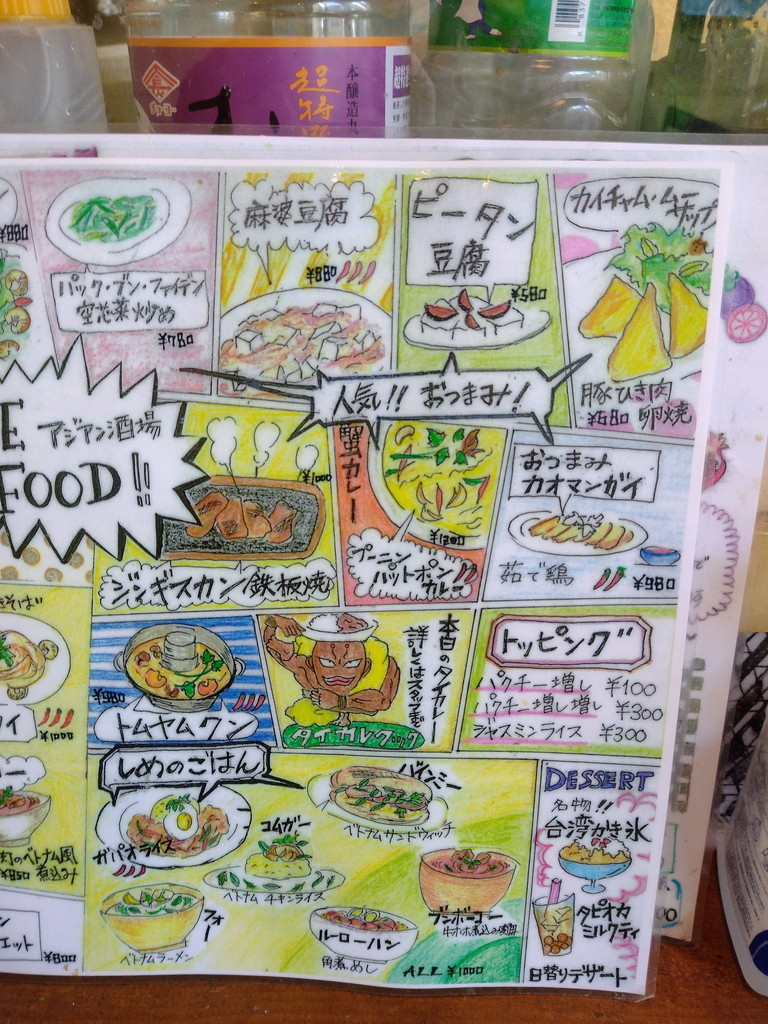 本醸造丸
超特選
チョーコー
¥880
パック・ブン・ファイデン
空芯菜炒め
¥780
麻婆豆腐
¥880
ピータン
豆腐
¥580
カイチャム・ムー
サップ
豚ひき肉
¥680 卵焼
E アジアン酒場
FOOD!!
人気!! おつまみ!
¥1000
ジンギスカン/鉄板焼
蟹カレー
¥1200
プーニン
パッポン
カレー
おつまみ
カオマンガイ
茹で鶏
¥980
¥1000
¥980
トムヤムクン
本日のタイカレー
詳しくはスタッフまで
タイカレクック
トッピング
パクチー増し ¥100
パクチー増し増し ¥300
ジャスミンライス ¥300
しめのごはん
ガパオライス
コムガー
ベトナムチキンライス
バインミー
ベトナムサンドウィッチ
フォー
ベトナムラーメン
ルーローハン
角煮めし
ブンボーフー
ALL ¥1000
DESSERT
名物!!
台湾かき氷
タピオカ
ミルクティ
日替りデザート
のベトナム風
¥850 煮込み
¥800